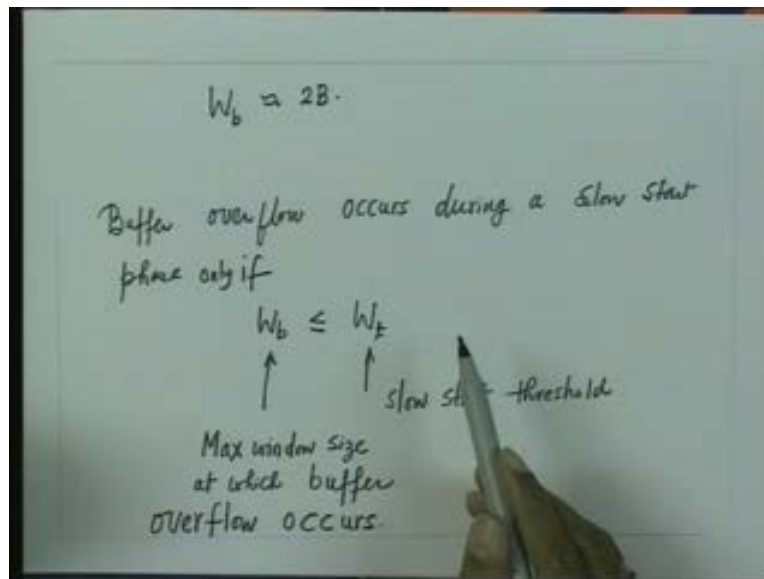 W_b ≈ 2B.
Buffer overflow occurs during a slow start
phase only if
W_b ≤ W_t
↑ ↑
slow start threshold
Max window size
at which buffer
overflow occurs.